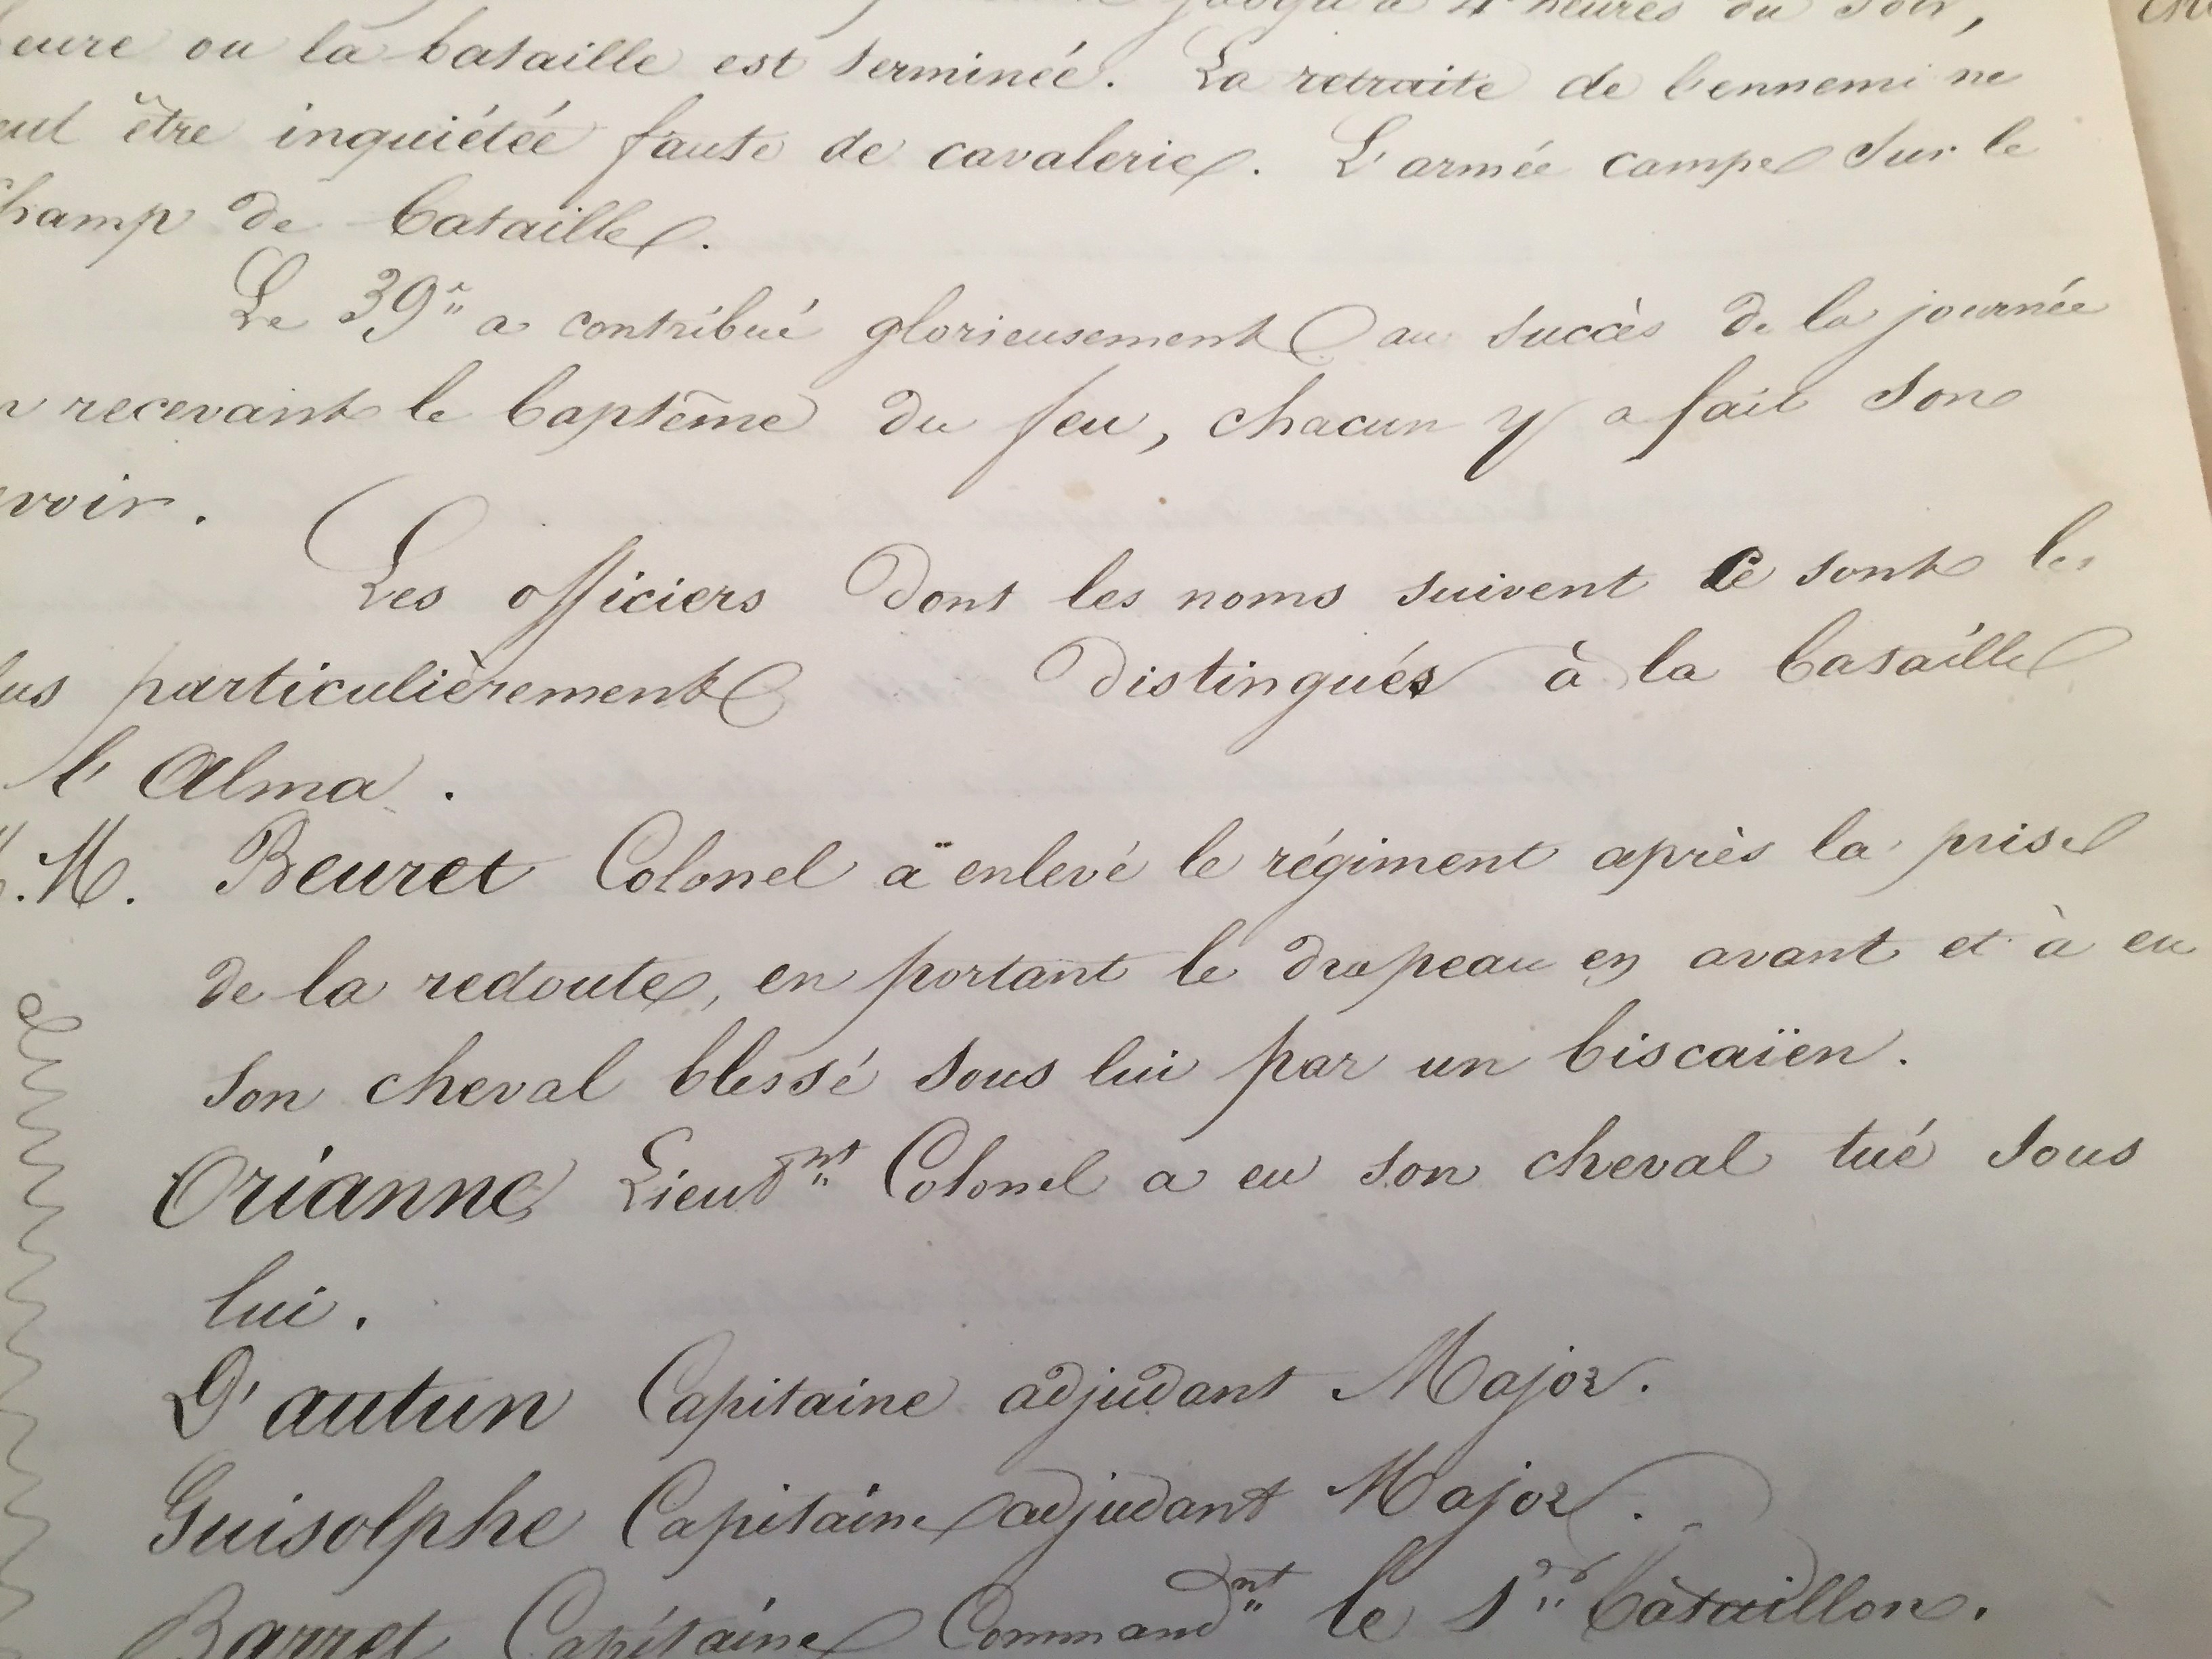 jusqu'à 4 heures du soir,
eure ou la bataille est terminée. La retraite de l'ennemi ne
eut être inquiétée faute de cavalerie. L'armée campe sur le
hamp de bataille.
Le 39e a contribué glorieusement au succès de la journée
n recevant le baptême du feu, chacun y a fait son
voir.
Les officiers dont les noms suivent ce sont les
lus particulièrement distingués à la bataille
l'Alma.
M. Beuret Colonel a enlevé le régiment après la prise
de la redoute, en portant le drapeau en avant et à eu
son cheval blessé sous lui par un biscaïen.
Orianne Lieutnt Colonel a eu son cheval tué sous
lui.
D'autun Capitaine adjudant Major.
Guisolphe Capitaine adjudant Major.
Barret Capitaine Commandnt le 1er bataillon.